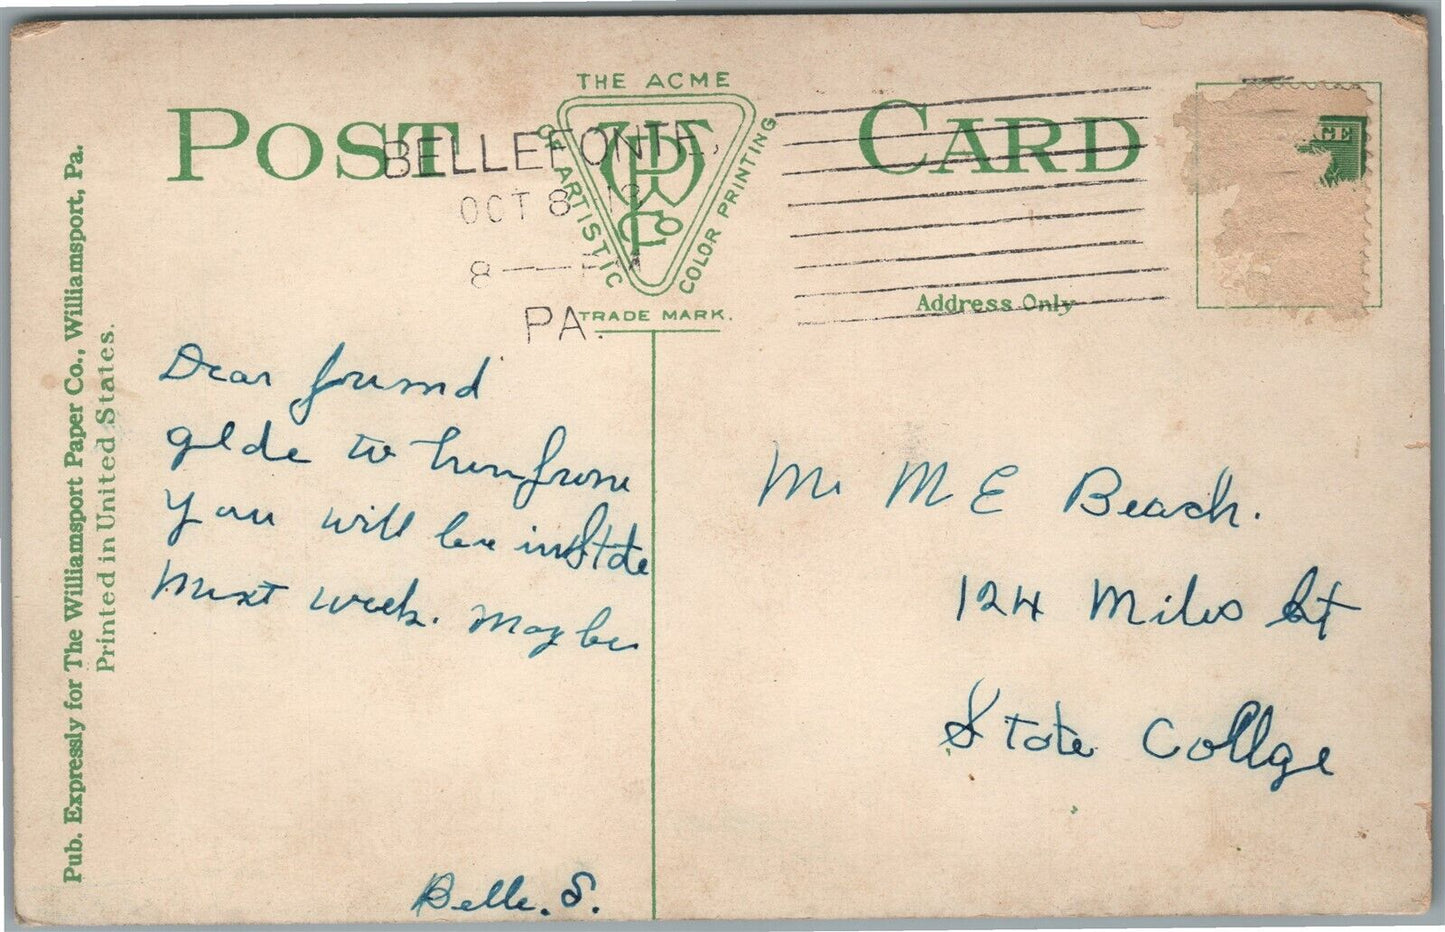 THE ACME
POST CARD
OF ARTISTIC
COLOR PRINTING
TRADE MARK.
BELLEFONTE,
OCT 8
8
PA.
GE
Address Only
Pub. Expressly for The Williamsport Paper Co., Williamsport, Pa.
Printed in United States.
Dear friend
glde to her from
you will be in State
next week. Maybe
Belle. S.
Mr M E Beach.
124 Miles St
State Collge